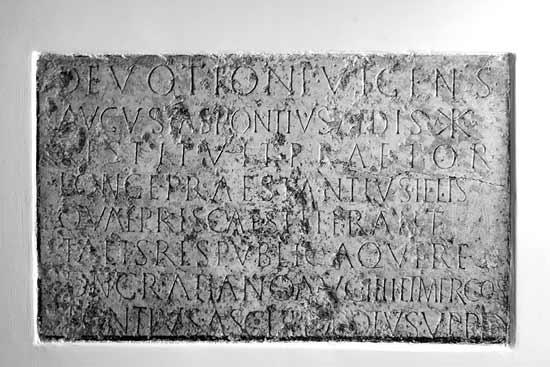 DEVOTIONE VIGENS
AVGVSTAS PONTIVS AEDIS ☧
RESTITVIT PRAETOR
LONGE PRAESTANTIVS ILLIS
QVAE PRISCAE STETERANT
TALIS RESPVBLICA QVERE
DN GRATIANO AVG IIII ET MER CO
PONTIVS ASCLEPIODOTVS VPP